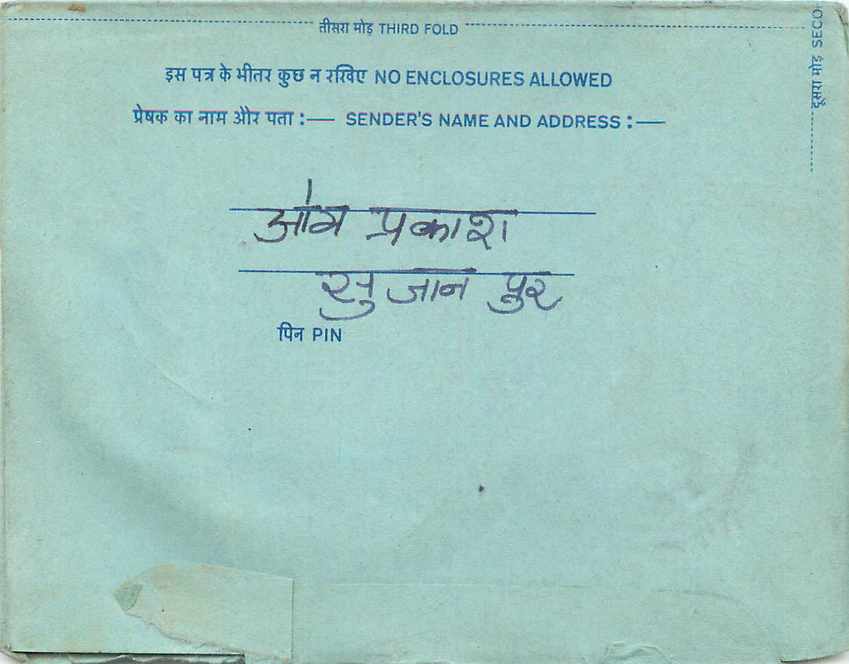 तीसरा मोड़ THIRD FOLD
दूसरा मोड़ SECO
इस पत्र के भीतर कुछ न रखिए NO ENCLOSURES ALLOWED
प्रेषक का नाम और पता :— SENDER'S NAME AND ADDRESS :—
ओम प्रकाश
सुजान पुर
पिन PIN